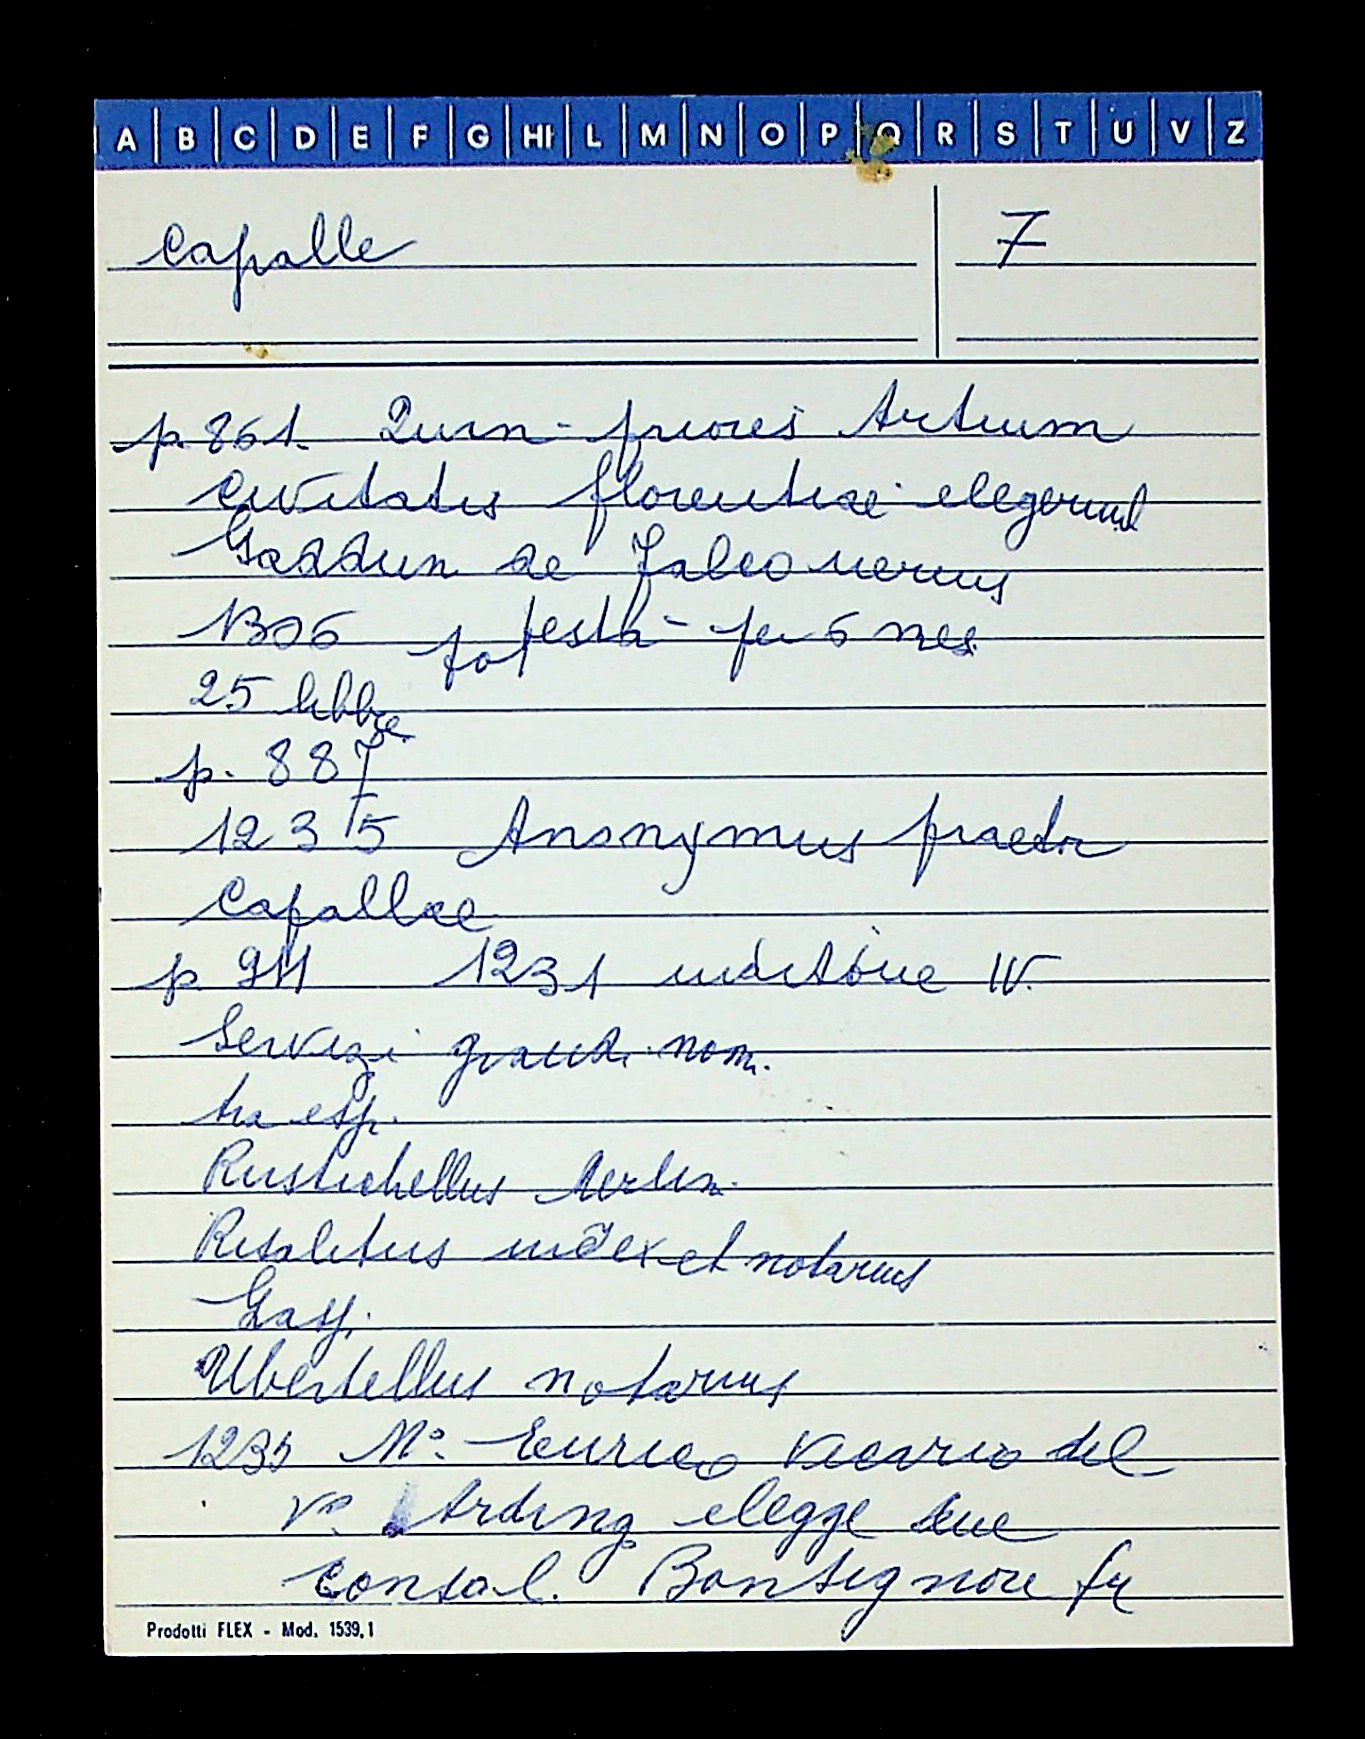 A B C D E F G HI L M N O P Q R S T U V Z
Capalle 7
p. 861. Quin- priores Artium
civitatis florentiae elegerunt
Gaddun de Falconerius
1306 potestà - per 6 mes.
25 libbre
p. 887
1235 Anonymus praetor
Capallae
p. 911 1231 indictione IV.
Servizi grandi nom.
tra esp.
Rustichellus
Risalitus iudex et notarius
Ubertellus notarius
1235 Mo. Enrico vicario del
Vo. Arding elegge due
consol. Bonsignore fu
Prodotti FLEX - Mod. 1539,1